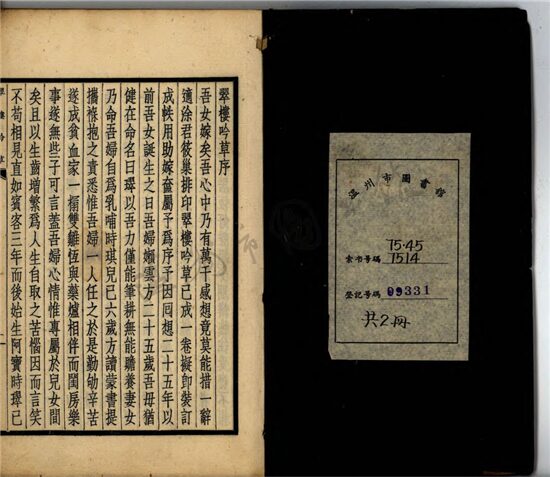 温州市圖書館
75·45
索書号碼 7514
登記号碼 09331
共2冊
翠樓吟草序
吾女嫁矣吾心中乃有萬千感想竟莫能措一辭
適涂君筱巢排印翠樓吟草已成一卷擬卽裝訂
成帙用助嫁奩屬予爲序予因囘想二十五年以
前吾女誕生之日吾婦嬾雲方二十五歲吾母猶
健在命名曰璻以吾力僅能筆耕無能贍養妻女
乃命吾婦自爲乳哺時琪兒已六歲方讀蒙書提
攜襁抱之責悉惟吾婦一人任之於是勤劬辛苦
遂成貧血家一榻雙雛恆與藥爐相伴而閨房樂
事遂無些子可言蓋吾婦心情惟專屬於兒女間
矣且以生齒增繁爲人生自取之苦惱因而言笑
不苟相見直如賓客三年而後始生阿寶時璻已
翠樓吟草